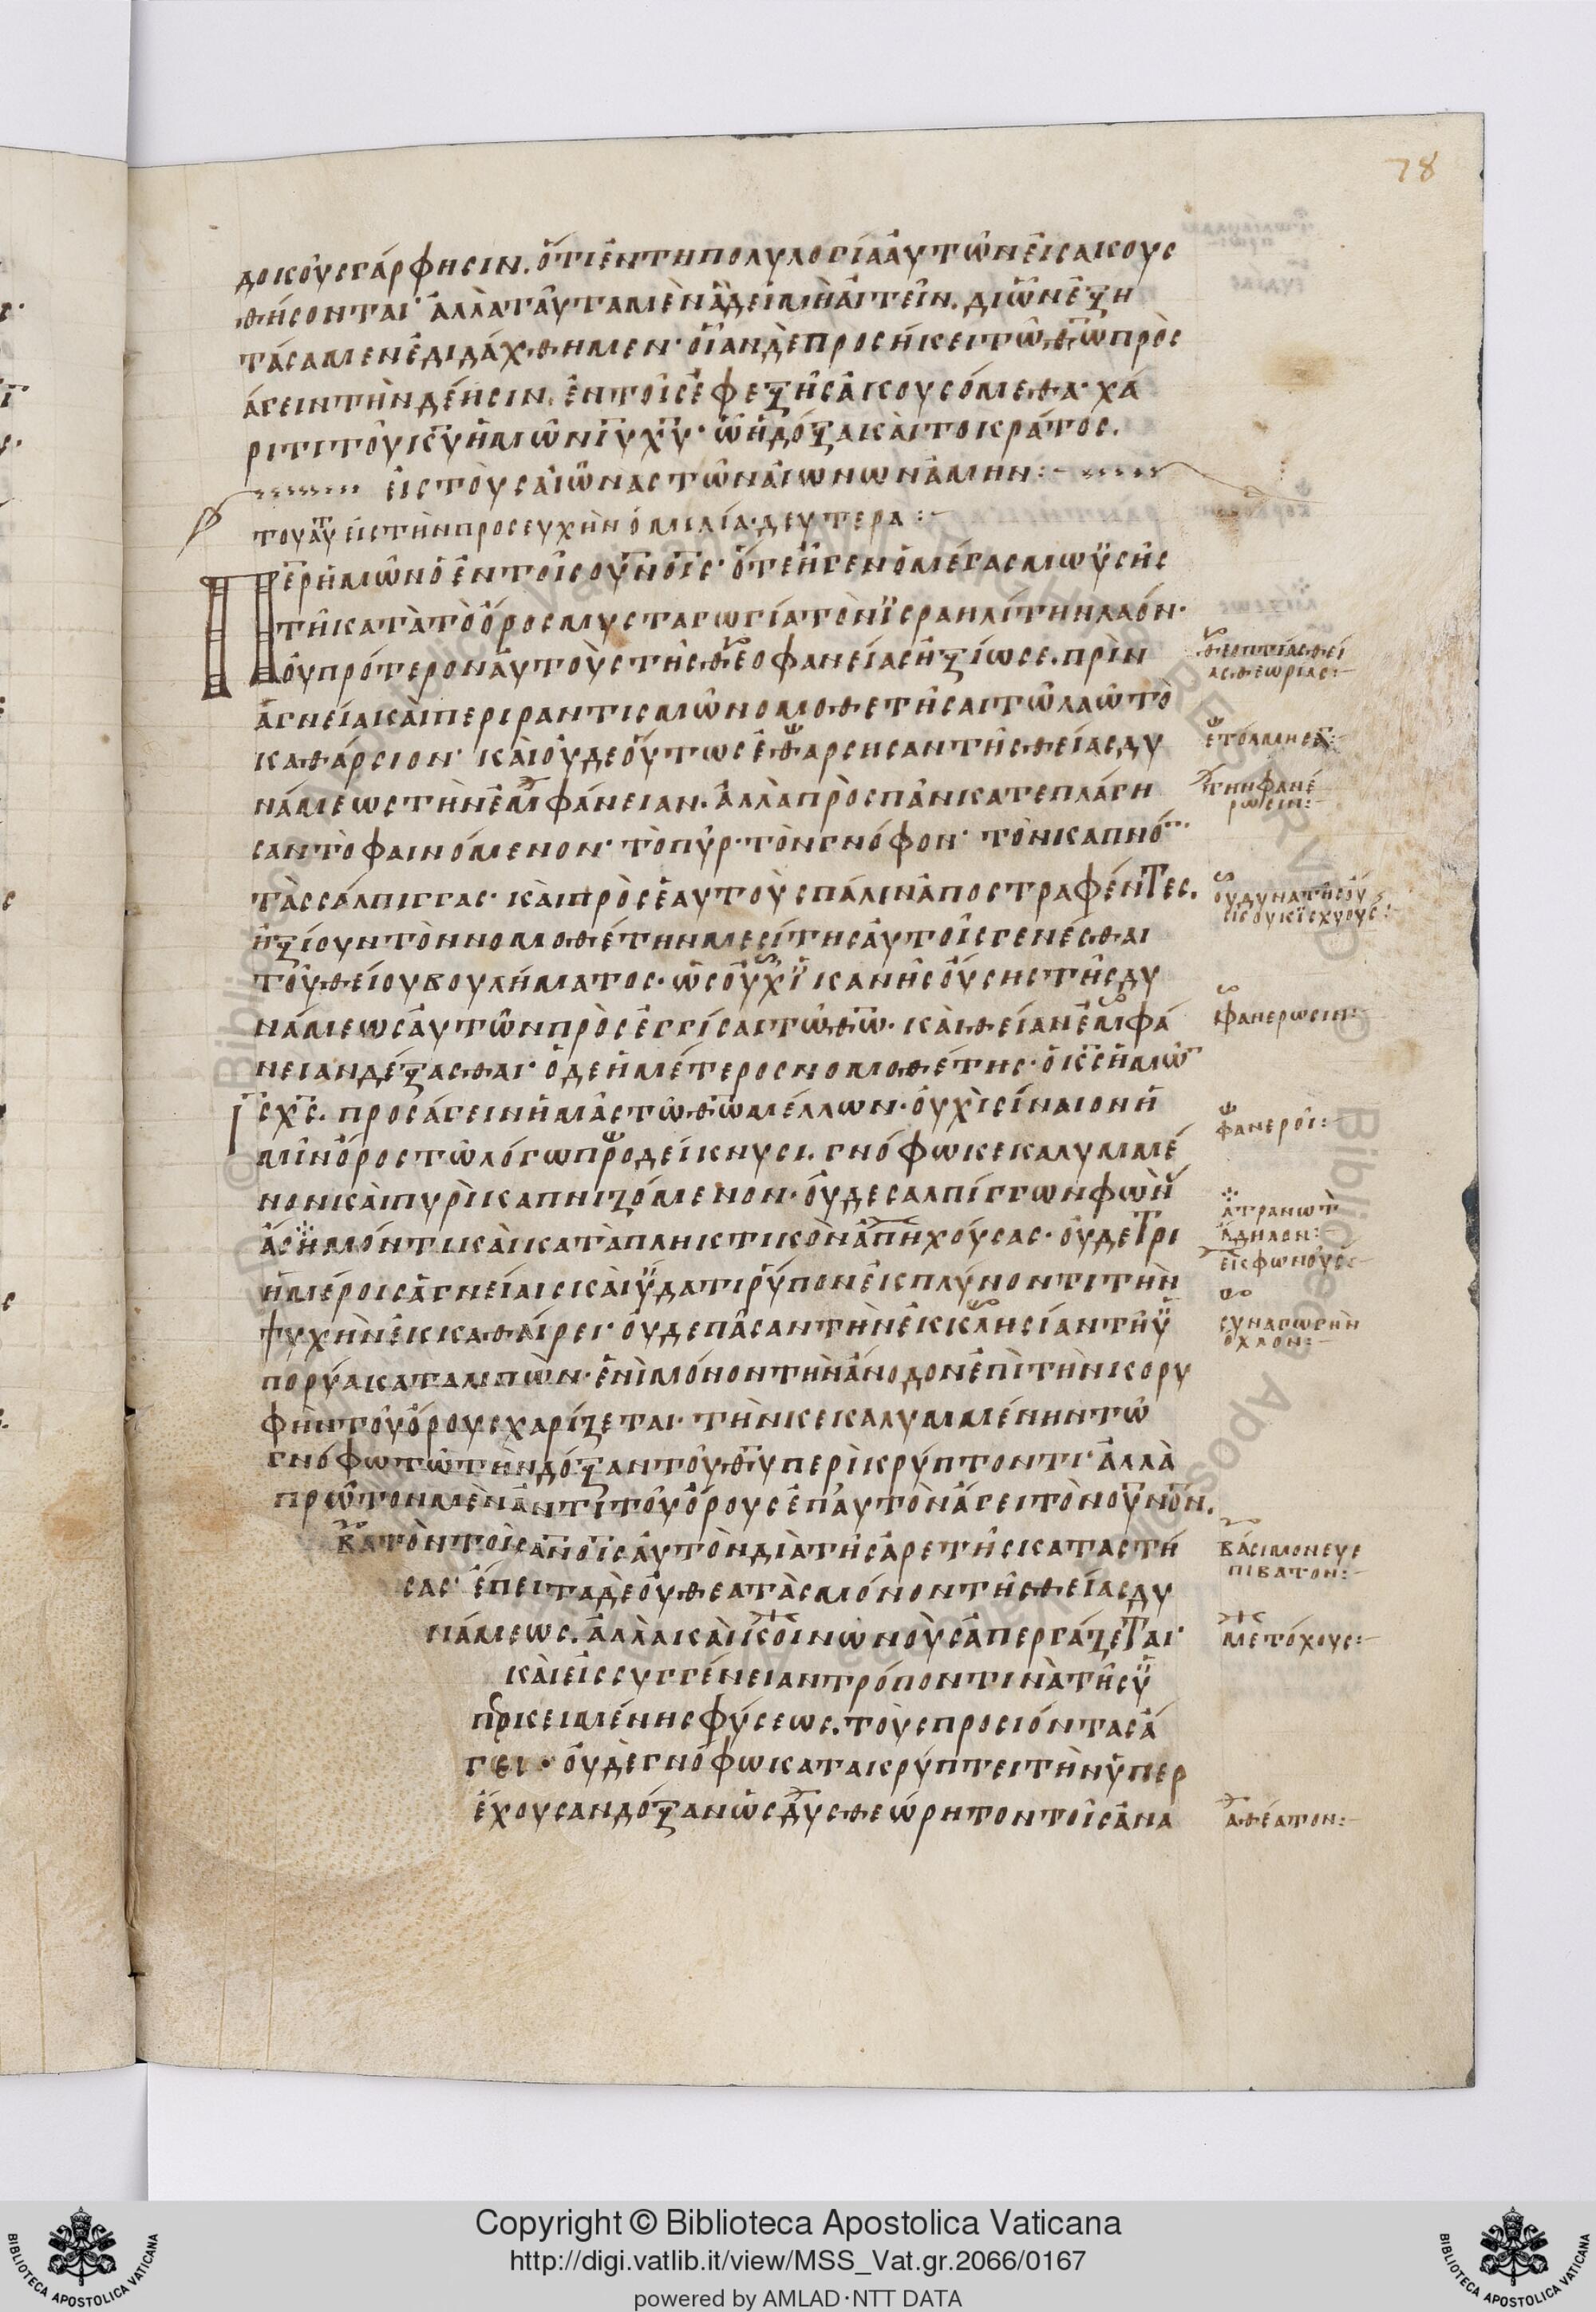 78
δοκοῦσι γάρ φησιν. ὅτι ἐν τῆ πολυλογία αὐτῶν εἰσακους
θήσονται· ἀλλὰ ταῦτα μὲν ἃ δεῖ μὴ αἰτεῖν. δι ὧν ἐξη
τάσαμεν ἐδιδάχθημεν· οἵαν δὲ προσήκει τῶ θ̅ω̅ προς
άγειν τὴν δέησιν, ἐν τοῖς ἐφεξῆς ἀκουσόμεθα· χά
ριτι τοῦ κ̅υ̅ ἡμῶν ι̅υ̅ χ̅υ̅· ὧ ἡ δόξα καὶ τὸ κράτος.
εἰς τοὺς αἰῶνας τῶν αἰώνων ἀμήν:-
τοῦ αὐ̅τ̅ εἰς τὴν προσευχὴν ὁμιλία δευτέρα:-
Περ ἡμῶν ὁ ἐν τοῖς ο̅υ̅ν̅ο̅ι̅ς̅· ὅτε ἦγεν ὁ μέγας μωϋσῆς
τῆ κατὰ τὸ ὄρος μυσταγωγία τὸν ϊσραηλίτην λαόν·
οὐ πρότερον αὐτοὺς τῆς θεοφανείας ἠξίωσε. πρὶν
ἁγνεία καὶ περιραντισμῶ νομοθετῆσαι τῶ λαῶ τὸ
καθάρσιον· καὶ οὐδε οὕτως ἐθάρσησαν τῆς θείας δυ
νάμεως τὴν ἐμφάνειαν. ἀλλὰ πρὸς πᾶν κατεπλάγη
σαν τὸ φαινόμενον· τὸ πῦρ· τὸν γνόφον· τὸν καπνό
τὰς σάλπιγγας· καὶ πρὸς ἑαυτοὺς πάλιν ἀποστραφέντες.
ἠξίουν τὸν νομοθέτην μεσίτης αὐτοῖς γενέσθαι
τοῦ θείου βουλήματος· ὡς οὐχ ϊκανῆς οὔσης τῆς δυ
νάμεως αὐτῶν προσεγγίσαι τῶ θ̅ω̅· καὶ θείαν ἐμφά
νειαν δέξασθαι· ὁ δε ἡμέτερος νομοθέτης· ὁ κ̅ς̅ ἡμῶ
ι̅ς̅ χ̅ς̅. προσάγειν ἡμᾶς τῶ θ̅ω̅ μέλλων· οὐχὶ σίναιον ἡ
μῖν ὄρος τῶ λόγω προδείκνυσι. γνόφω κεκαλυμμέ
νον καὶ πυρὶ καπνιζόμενον· οὐδε σαλπίγγων φωνὴ
ἄσημόν τι καὶ καταπληκτικὸν ἀπηχούσας· οὐδε τρι
ημέροις ἁγνείαις καὶ ὕδατι ῥύπον ἐκπλύνοντι τὴν
ψυχὴν ἐκκαθαίρει· οὐδε πᾶσαν τὴν ἐκκλησίαν τῆ ὑ
πορύα καταλιπὼν· ἑνὶ μόνον τὴν ἄνοδον ἐπὶ τὴν κορυ
φὴν τοῦ ὄρους χαρίζεται· τὴν κεκαλυμμένην τῶ
γνόφω τῶ τὴν δόξαν τοῦ θ̅υ̅ περικρύπτοντι· ἀλλὰ
πρῶτον μὲν ἀντὶ τοῦ ὄρους ἐπ αὐτὸν ἄγει τὸν ο̅υ̅ν̅ο̅ν̅.
βατὸν τοῖς α̅ν̅ο̅ι̅ς̅ αὐτὸν διὰ τῆς ἀρετῆς καταστή
σας· ἔπειτα δὲ οὐ θεατὰς μόνον τῆς θείας δυ
νάμεως. ἀλλὰ καὶ κοινωνοὺς ἀπεργάζεται·
καὶ εἰς συγγένειαν τρόπον τινὰ τῆς ὑ
προκειμένης φύσεως. τοὺς προσιόντας ἄ
γει· οὐδὲ γνόφω κατακρύπτει τὴν ὑπερ
έχουσαν δόξαν ὡς δυσθεώρητον τοῖς ἀνα
θεοπτίας θεί
ας θεωρίας:-
ἐτόλμησα:-
τὴν φανέ
ρωσιν:-
οὐ δυνατῆς οὔ
σης οὐκ ϊσχυούσ:-
φανέρωσιν:-
φανεροῖ:-
ἄτρανωτ
ἄδηλον:
εἰσφωνούσ:-
συναγωγὴν
ὄχλον:-
βάσιμον εὐε
πίβατον:-
μετόχους:-
ἀθέατον:-
Copyright © Biblioteca Apostolica Vaticana
http://digi.vatlib.it/view/MSS_Vat.gr.2066/0167
powered by AMLAD·NTT DATA
BIBLIOTECA APOSTOLICA VATICANA
BIBLIOTECA APOSTOLICA VATICANA